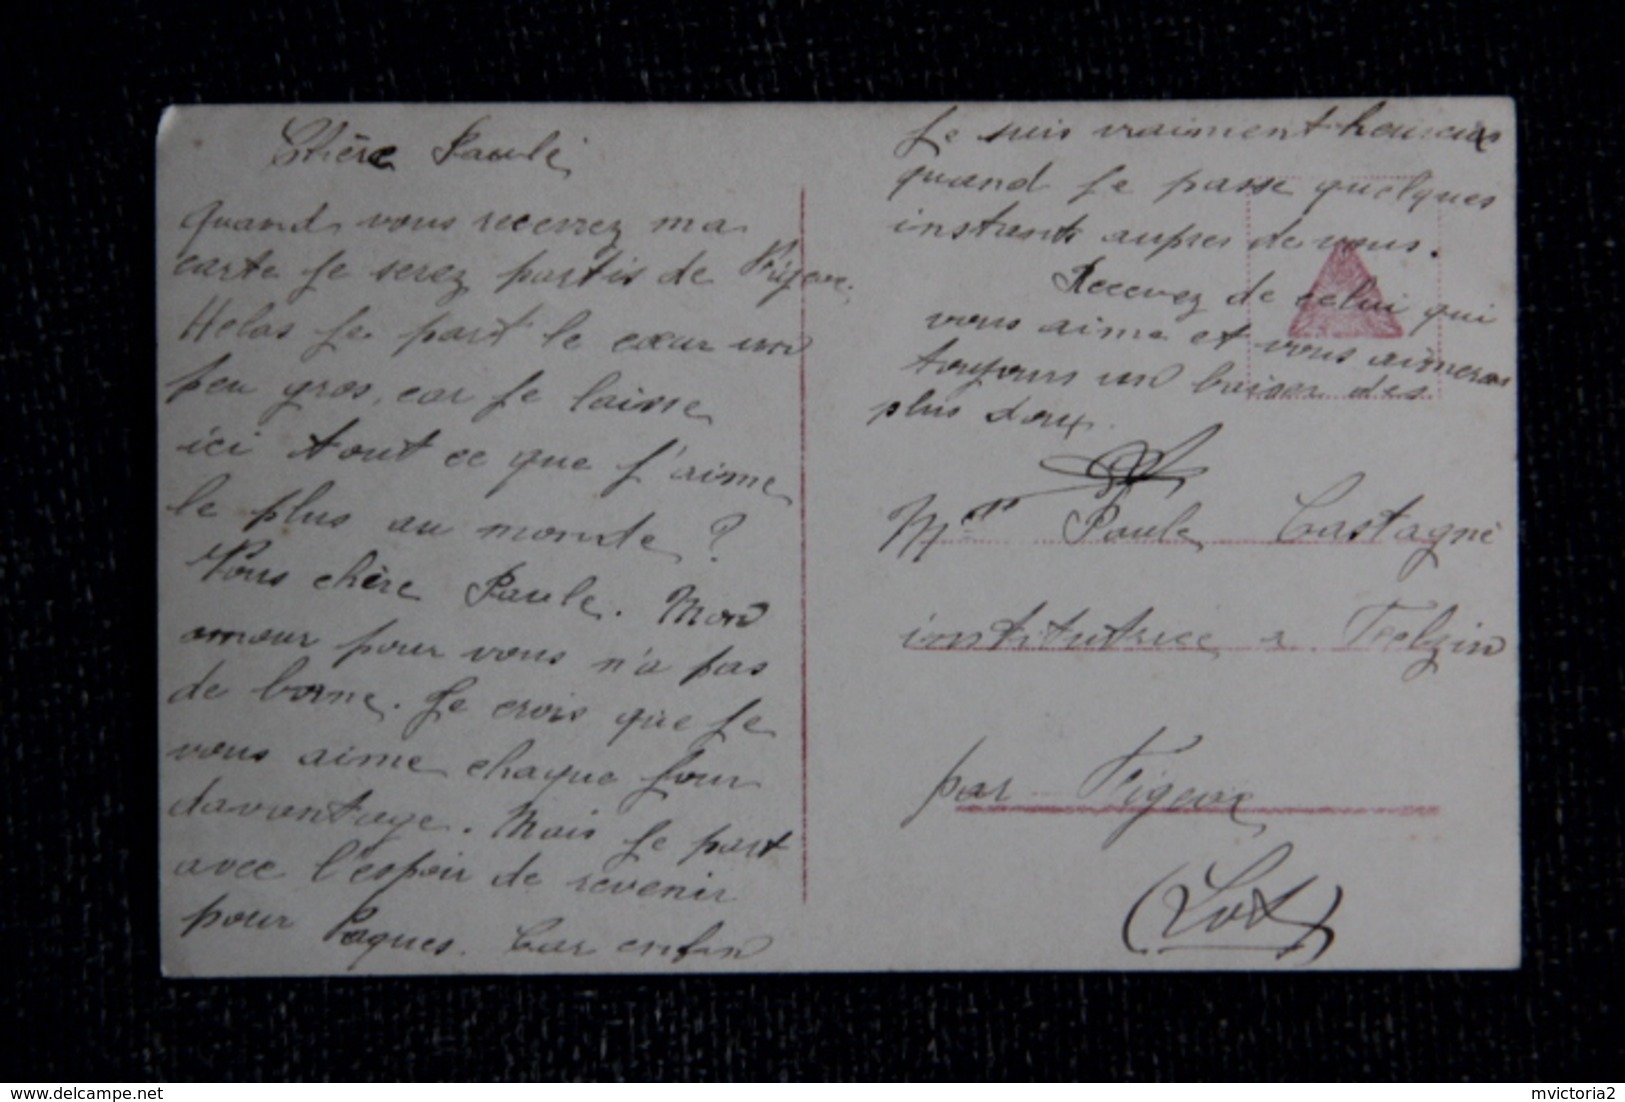 Chère Paule
Quand vous recevrez ma
carte je serez partis de Figeac.
Helas je part le cœur un
peu gros, car je laisse
ici tout ce que j'aime
le plus au monde ?
Vous chère Paule. Mon
amour pour vous n'a pas
de borne. Je crois que je
vous aime chaque jour
davantage. Mais je part
avec l'espoir de revenir
pour Paques. Car enfin
Je suis vraiment heureux
quand je passe quelques
instants aupres de vous.
Recevez de celui qui
vous aime et vous aimeras
toujours un baiser des
plus doux.
Melle Paule Castagné
institutrice a Felzin
par Figeac
(Lot)
mvictoria2